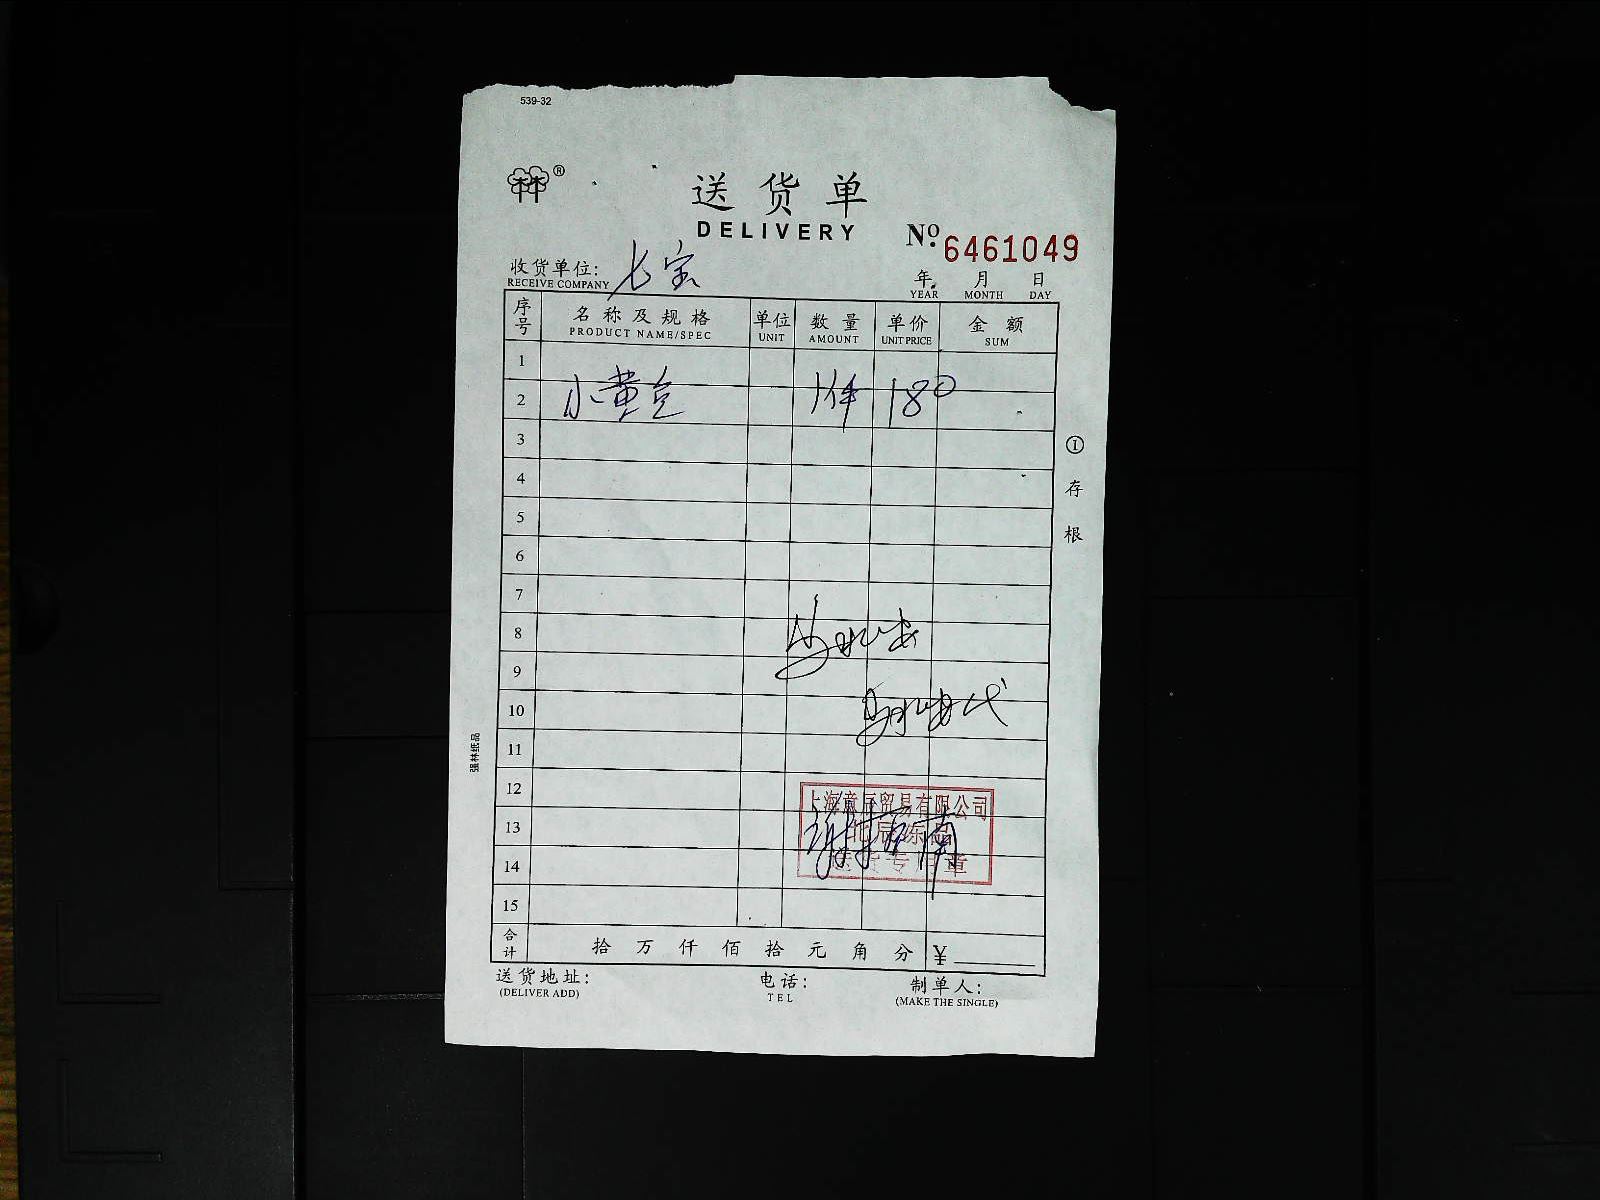 539-32
林®
送货单
DELIVERY
No. 6461049
收货单位: 七宝
RECEIVE COMPANY
年 月 日
YEAR MONTH DAY
序号 名称及规格 单位 数量 单价 金额
PRODUCT NAME/SPEC UNIT AMOUNT UNIT PRICE SUM
1
2 小黄鱼 1件 180
3
4
5
6
7
8
9
10
11
12
13
14
15
上海 贸易有限公司
北辰冻品
送货专用章
合计 拾 万 仟 佰 拾 元 角 分 ¥
送货地址: 电话: 制单人:
(DELIVER ADD) TEL (MAKE THE SINGLE)
① 存根
强林纸品